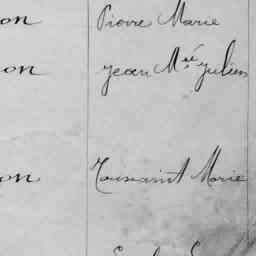 on Pierre Marie
on Jean Mie Julien
on Toussaint Marie